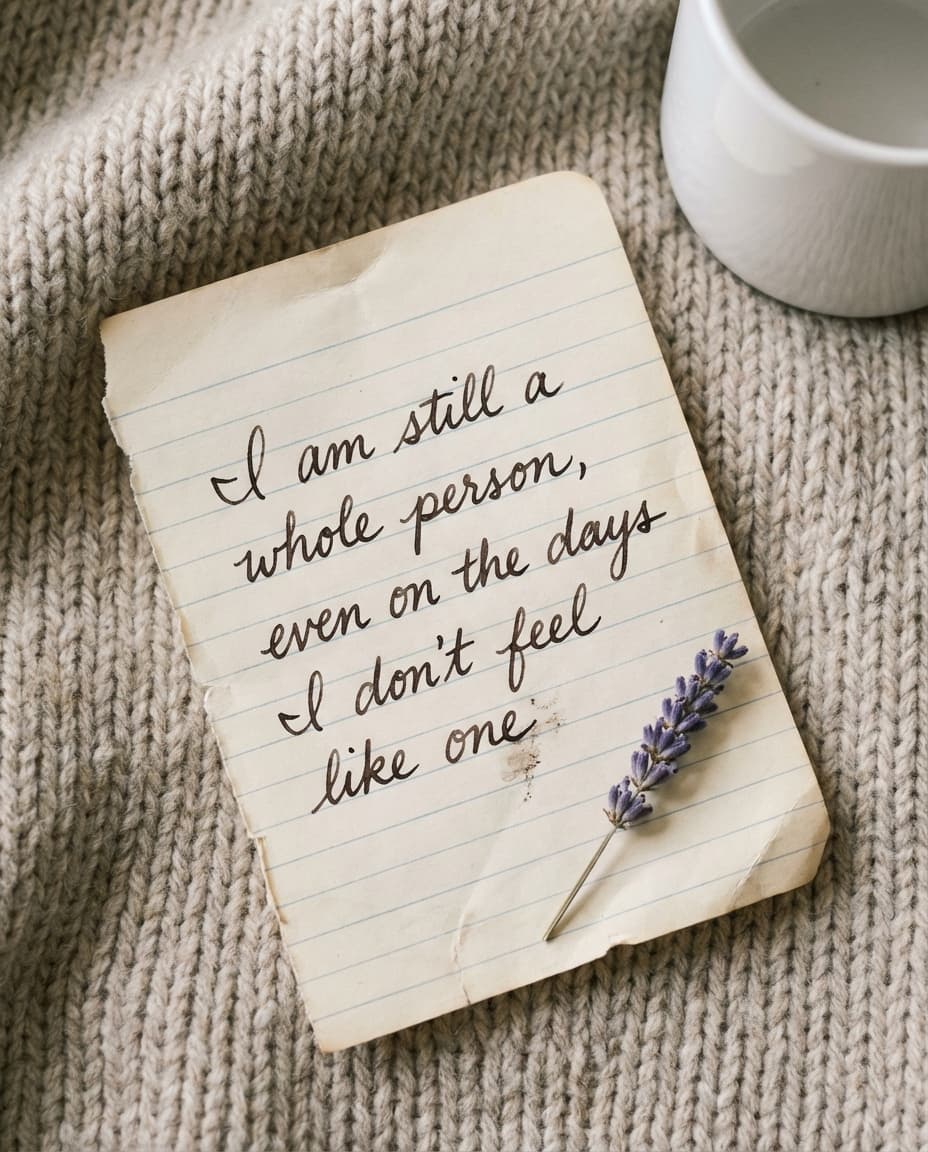 I am still a
whole person,
even on the days
I don't feel
like one